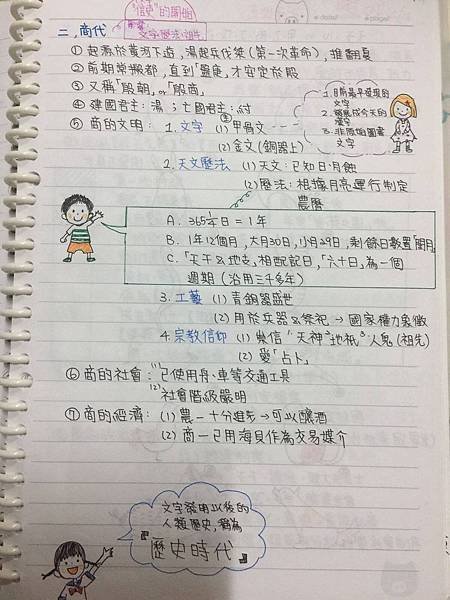 "信史"的開始
文字、曆法、祖先
二、商代
① 起源於黃河下游,湯起兵伐桀(第一次革命),推翻夏
② 前期常搬都,直到「盤庚」才安定於殷
③ 又稱「殷朝」或「殷商」
④ 建國君主:湯;亡國君主:紂
⑤ 商的文明: 1. 文字 (1) 甲骨文
(2) 金文(銅器上)
1. 目前最早發現的文字
2. 發展成今天的漢字
3. 非原始圖畫文字
2. 天文曆法 (1) 天文:已知日、月蝕
(2) 曆法:根據月亮運行制定
農曆
A. 365¼日=1年
B. 1年12個月,大月30日,小月29日,剩餘日數置「閏月」
C. 「天干&地支」相配記日,「六十日」為一個
週期(沿用三千多年)
3. 工藝 (1) 青銅器盛世
(2) 用於兵器&祭祀→國家權力象徵
4. 宗教信仰 (1) 篤信 1.天神 2.地祇 3.人鬼(祖先)
(2) 愛「占卜」
⑥ 商的社會: (1) 已使用舟、車等交通工具
(2) 社會階級嚴明
⑦ 商的經濟: (1) 農-十分進步→可以釀酒
(2) 商-已用海貝作為交易媒介
文字發明以後的
人類歷史,稱為
『歷史時代』